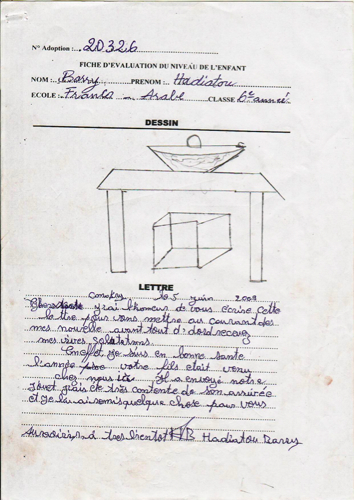 N° Adoption : 20326
FICHE D'EVALUATION DU NIVEAU DE L'ENFANT
NOM : Barry PRENOM : Hadiatou
ECOLE : Franco - Arabe CLASSE 6e année
DESSIN
LETTRE
Conakry le 5 juin 2009
j'ai l'honneur de vous écrire cette
lettre pour vous mettre au courant des
mes nouvelle avant tout d'abord recevez
mes vives salutations
En effet, je suis en bonne sante
l'année votre fils était venu
chez nous ici. Il a envoyé notre
jouet j'ais été tres contente de son arrivée
et je lui ai remis quelque chose pour vous
Au revoir, à tres bientot HB Hadiatou Barry